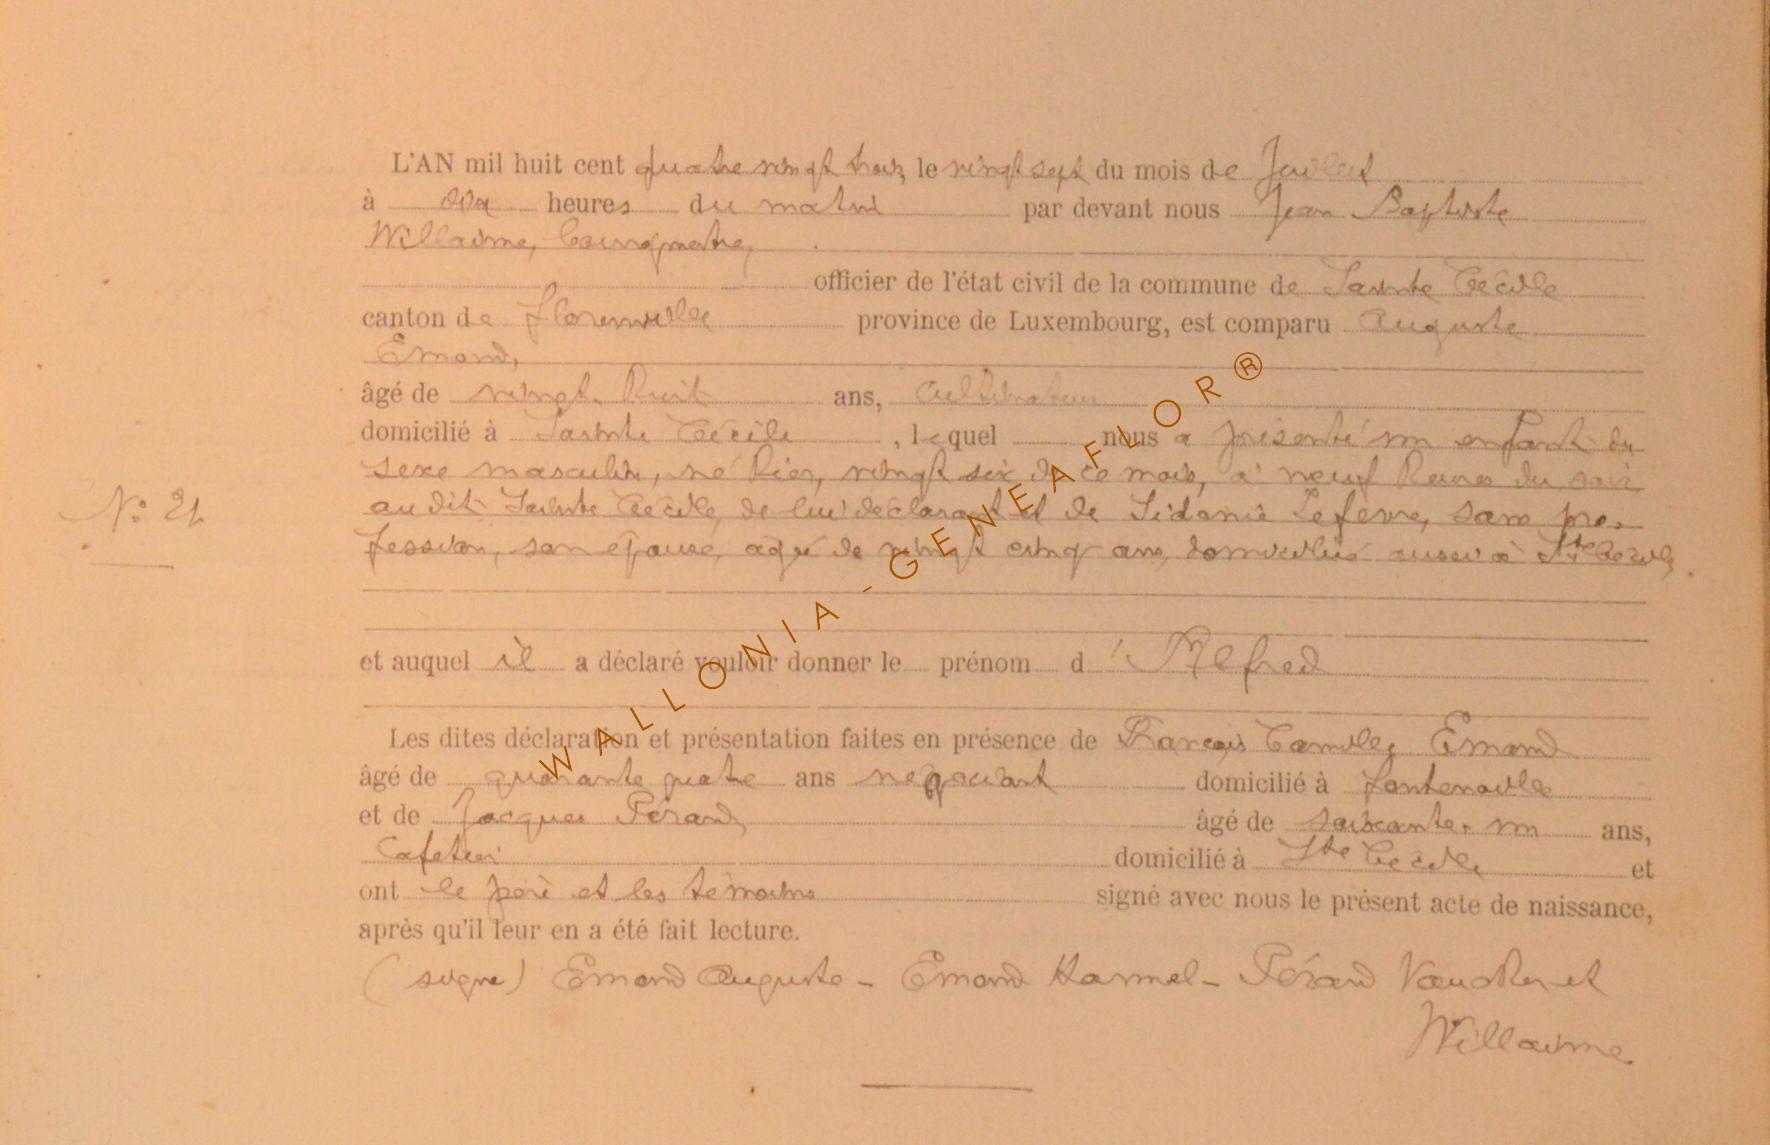 L'AN mil huit cent quatre vingt trois, le vingt sept du mois de Juillet
à dix heures du matin par devant nous Jean Baptiste
Willaime, Bourgmestre,
officier de l'état civil de la commune de Sainte Cécile
canton de florenville province de Luxembourg, est comparu Auguste
Emond,
âgé de vingt huit ans, cultivateur
domicilié à Sainte Cécile, lequel nous a présenté un enfant du
sexe masculin, né hier, vingt six de ce mois, à neuf heures du soir
au dit Sainte Cécile, de lui déclarant et de Sidonie Lefevre, sans pro-
fession, son épouse, agée de vingt cinq ans, domiciliée aussi à Ste Cécile
N° 21
et auquel il a déclaré vouloir donner le prénom d'Alfred
Les dites déclaration et présentation faites en présence de François Camille Emond
âgé de quarante quatre ans négociant domicilié à fontenoille
et de Jacques Pérard, âgé de soixante un ans,
domicilié à Ste Cécile et
ont le père et les témoins signé avec nous le présent acte de naissance,
après qu'il leur en a été fait lecture.
(signé) Emond Auguste - Emond Harmel - Pérard et
Willaime
WALLONIA - GENEAFLOR®